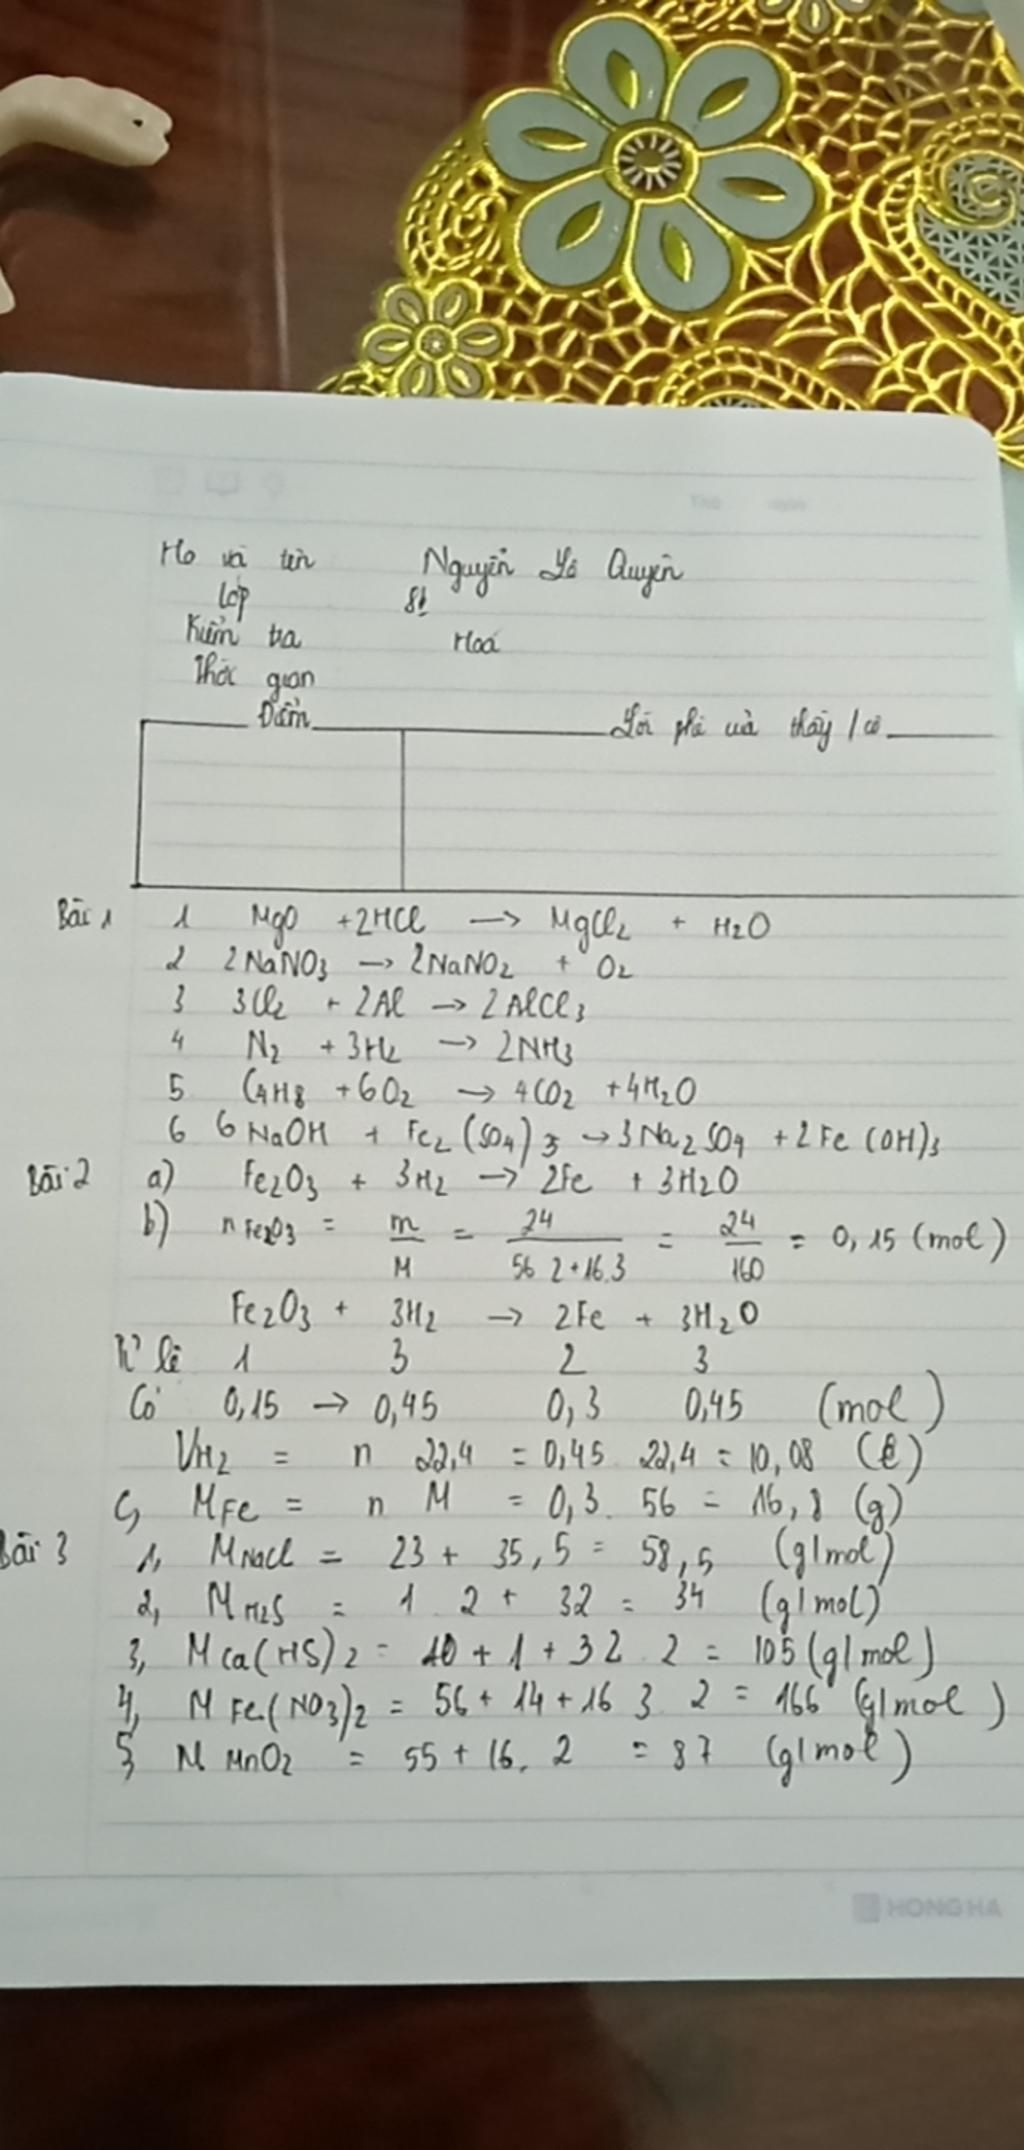 Họ và tên Nguyễn Lê Quyên
Lớp 8
Kiểm tra Hoá
Thời gian
Điểm Lời phê của thầy / cô
Bài 1 1 MgO +2HCl → MgCl2 + H2O
2 2NaNO3 → 2NaNO2 + O2
3 3Cl2 + 2Al → 2AlCl3
4 N2 + 3H2 → 2NH3
5 C4H8 + 6O2 → 4CO2 +4H2O
6 6NaOH + Fe2(SO4)3 → 3Na2SO4 + 2Fe(OH)3
Bài 2 a) Fe2O3 + 3H2 → 2Fe + 3H2O
b) nFe2O3 = m/M = 24/56 2+16.3 = 24/160 = 0,15 (mol)
Fe2O3 + 3H2 → 2Fe + 3H2O
Tỉ lệ 1 3 2 3
Có 0,15 → 0,45 0,3 0,45 (mol)
VH2 = n 22,4 = 0,45 22,4 = 10,08 (l)
c, MFe = n M = 0,3. 56 = 16,8 (g)
Bài 3 1, MNaCl = 23 + 35,5 = 58,5 (g/mol)
2, MH2S = 1 2 + 32 = 34 (g/mol)
3, MCa(HS)2 = 40 + 1 + 32 2 = 105 (g/mol)
4, M Fe(NO3)2 = 56 + 14 + 16 3 2 = 166 (g/mol)
5 M MnO2 = 55 + 16. 2 = 87 (g/mol)
HONG HA